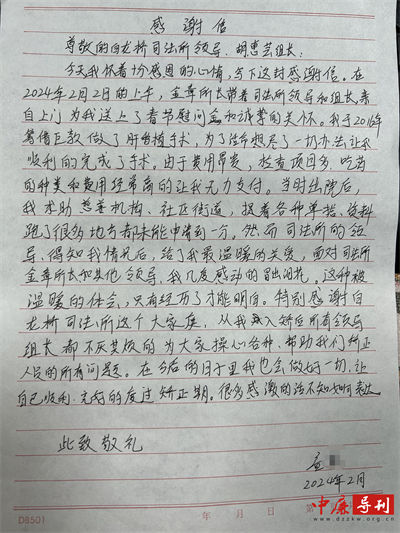 感谢信
尊敬的白龙桥司法所领导、胡惠芸组长:
今天我怀着十分感恩的心情,写下这封感谢信。在
2024年2月2日的上午,金章所长带着司法所领导和组长,亲
自上门为我送上了春节慰问金和诚挚的关怀。我于2016年
筹借巨款做了肝移植手术,为了治病想尽了一切办法,让我
顺利的完成了手术。由于费用昂贵,检查项目多,吃药
的种类和费用经常高的让我无力支付。当时出院后,
我求助慈善机构、社区街道,提着各种单据、资料
跑了很多地方都未能申请到一分。然而司法所的领
导,得知我情况后,给了我最温暖的关爱,面对司法所
金章所长和其他领导,我几度感动的冒出泪花。这种被
温暖的体会,只有经历了才能明白。特别感谢白
龙桥司法所这个大家庭,从我入矫后所有领导
组长都不厌其烦的为大家操心各种,帮助我们矫正
人员的所有问题。在今后的日子里我也会做好一切,让
自己顺利、完好的度过矫正期。很多感激的话不知如何表达
此致敬礼
2024年2月
DB501
年 月 日 第
中廉导刊
www.dzzkw.org.cn